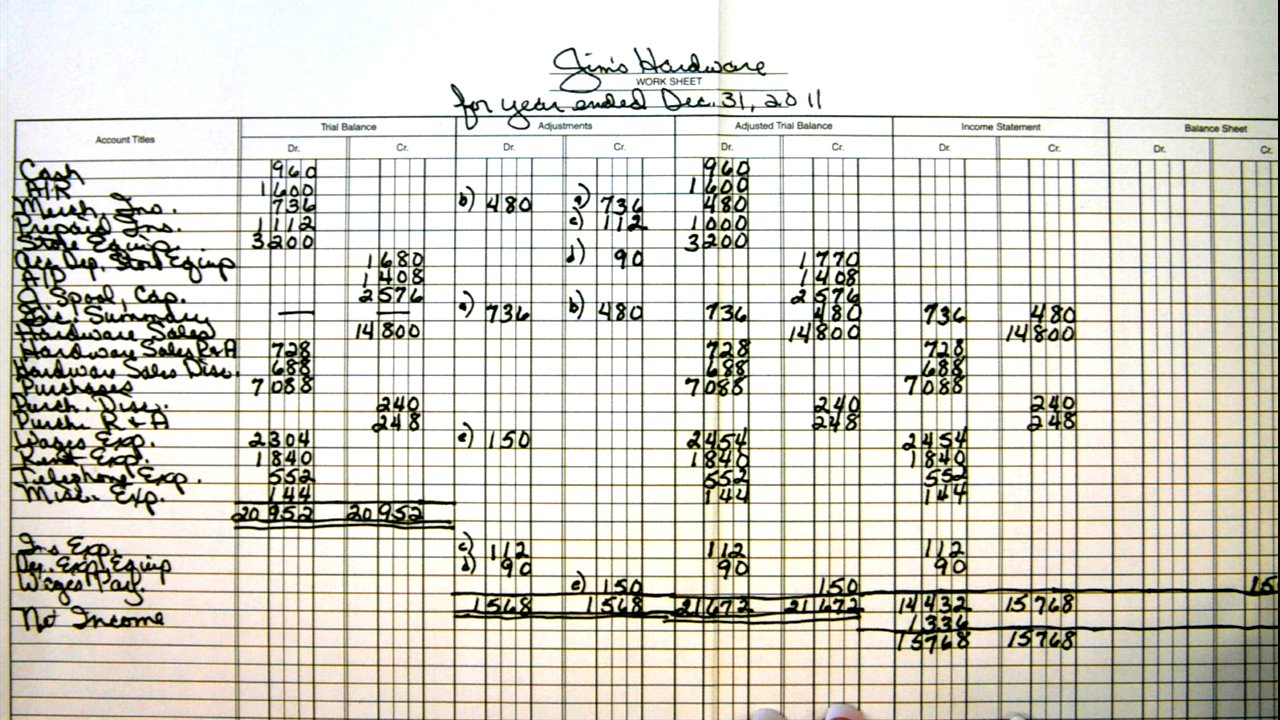 Jim's Hardware
WORK SHEET
for year ended Dec. 31, 2011
Account Titles Trial Balance Adjustments Adjusted Trial Balance Income Statement Balance Sheet
Dr. Cr. Dr. Cr. Dr. Cr. Dr. Cr. Dr. Cr.
Cash 960 960
A/R 1600 1600
Merch. Ins. 736 b) 480 a) 736 480
Prepaid Ins. 1112 c) 112 1000
Store Equip. 3200 3200
Acc. Dep. Store Equip 1680 d) 90 1770
A/P 1408 1408
J. Spool, Cap. 2576 2576
Inc. Summary — — a) 736 b) 480 736 480 736 480
Hardware Sales 14800 14800 14800
Hardware Sales R&A 728 728 728
Hardware Sales Disc. 688 688 688
Purchases 7088 7088 7088
Purch. Disc. 240 240 240
Purch. R & A 248 248 248
Wages Exp. 2304 e) 150 2454 2454
Rent Exp. 1840 1840 1840
Telephone Exp. 552 552 552
Misc. Exp. 144 144 144
20952 20952
Ins Exp. c) 112 112 112
Dep. Exp. Equip d) 90 90 90
Wages Pay. e) 150 150 15
1568 1568 21672 21672 14432 15768
Net Income 1336
15768 15768